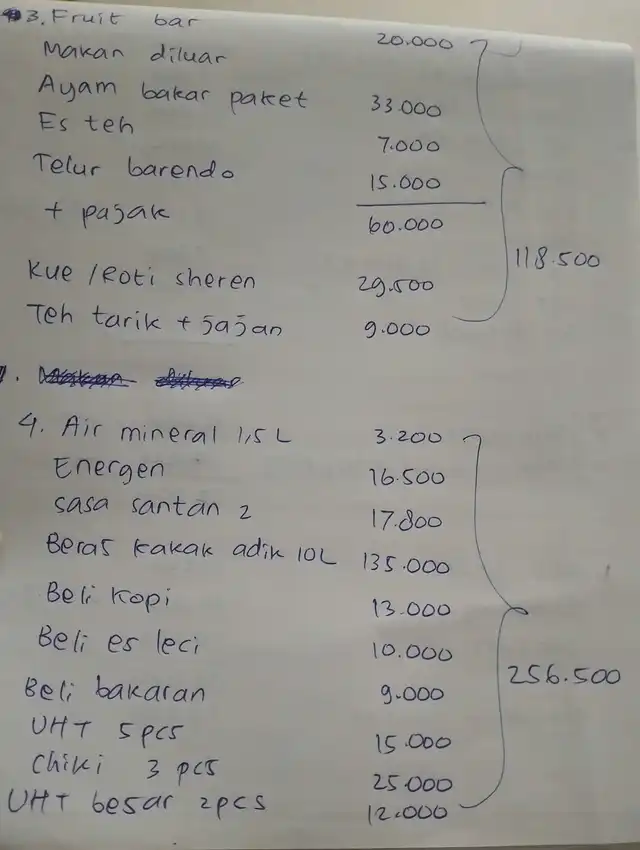 3. Fruit bar 20.000
Makan diluar
Ayam bakar paket 33.000
Es teh 7.000
Telur barendo 15.000
+ pajak 60.000
118.500
Kue / Roti sheren 29.500
Teh tarik + jajan 9.000
4. Air mineral 1,5 L 3.200
Energen 16.500
Sasa santan 2 17.800
Beras kakak adik 10L 135.000
Beli kopi 13.000
Beli es leci 10.000
256.500
Beli bakaran 9.000
UHT 5 pcs 15.000
Chiki 3 pcs 25.000
UHT besar 2 pcs 12.000